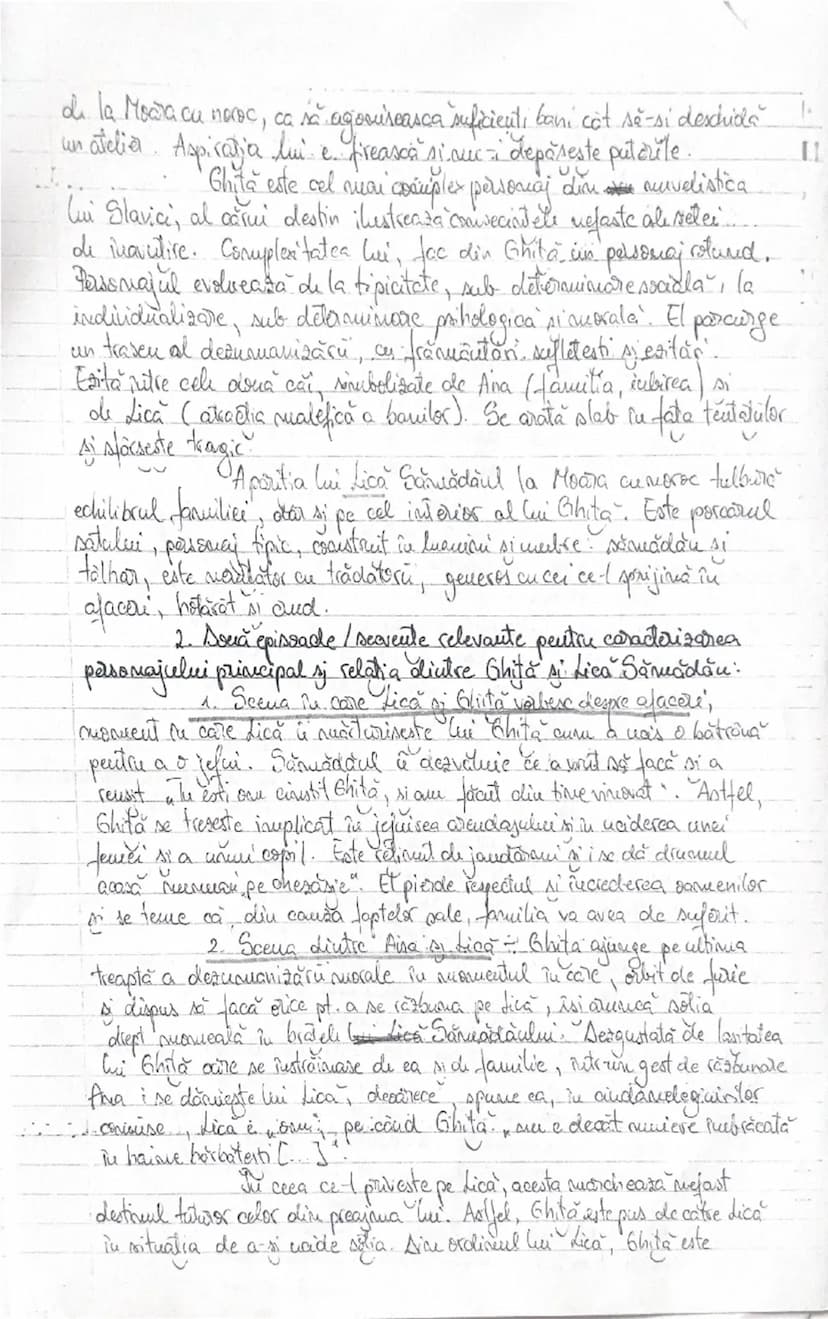 de la Moara cu noroc, ca să agonisească suficienți bani cât să-și deschidă
un atelier. Aspirația lui e firească și nu-i depășește puterile.
Ghiță este cel mai complex personaj din nuvelistica
lui Slavici, al cărui destin ilustrează consecințele nefaste ale setei
de înavuțire. Complexitatea lui, fac din Ghiță un personaj rotund.
Personajul evoluează de la tipicitate, sub determinare socială, la
individualizare, sub determinare psihologică și morală. El parcurge
un traseu al dezumanizării, cu frământări sufletești și ezitări.
Ezită între cele două căi, simbolizate de Ana (familia, iubirea) și
de Lică (atracția malefică a banilor). Se arată slab în fața tentațiilor
și sfârșește tragic.
Apariția lui Lică Sămădăul la Moara cu noroc tulbură
echilibrul familiei, dar și pe cel interior al lui Ghiță. Este porcarul
satului, personaj tipic, construit în lumini și umbre: sămădău și
tâlhar, este necruțător cu trădătorii, generos cu cei ce-l sprijină în
afaceri, hotărât și crud.
2. Două episoade/secvențe relevante pentru caracterizarea
personajului principal și relația dintre Ghiță și Lică Sămădău:
1. Scena în care Lică și Ghiță vorbesc despre afaceri,
moment în care Lică îi mărturisește lui Ghiță cum a ucis o bătrână
pentru a o jefui. Sămădăul îi dezvăluie ce a vrut să facă și a
reușit „Tu ești om cinstit Ghiță, și am făcut din tine vinovat". Astfel,
Ghiță se trezește implicat în jefuirea arendașului și în uciderea unei
femei și a unui copil. Este reținut de jandarmi și i se dă drumul
acasă „numai pe chezășie". El pierde respectul și încrederea oamenilor
și se teme că, din cauza faptelor sale, familia va avea de suferit.
2. Scena dintre Ana și Lică - Ghiță ajunge pe ultima
treaptă a dezumanizării morale în momentul în care, orbit de furie
și dispus să facă orice pt. a se răzbuna pe Lică, își aruncă soția
drept momeală în brațele Sămădăului. Dezgustată de lașitatea
lui Ghiță care se înstrăinase de ea și de familie, într-un gest de răzbunare
Ana i se dăruiește lui Lică, deoarece, spune ea, în ciuda nelegiuirilor
comise, Lică e „om", pe când Ghiță „nu e decât muiere îmbrăcată
în haine bărbătești [...]".
În ceea ce-l privește pe Lică, acesta marchează nefast
destinul tuturor celor din preajma lui. Astfel, Ghiță este pus de către Lică
în situația de a-și ucide soția. Din ordinul lui Lică, Ghiță este